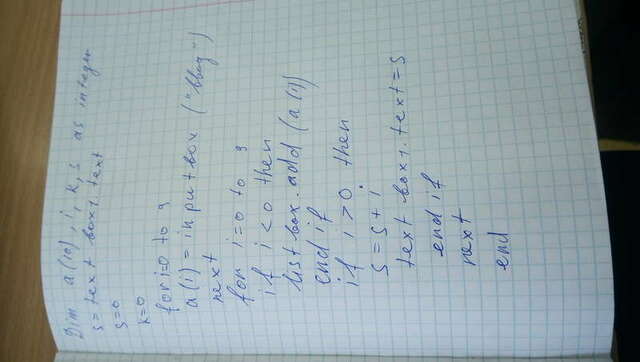 Dim a(10) i, k, s as integer
s = text box1.text
s=0
k=0
for i=0 to 9
a(i) = input box ("ввод")
next
for i=0 to 9
if i < 0 then
list box.add (a(i))
end if
if i > 0 then
s = s + i
text box1.text = s
end if
next
end